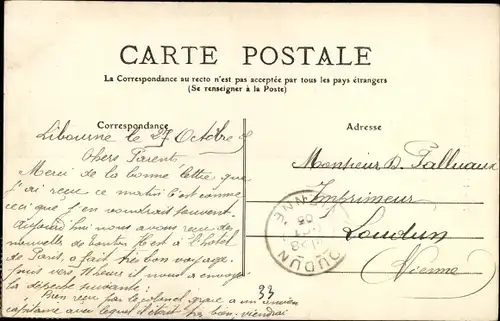 CARTE POSTALE
La Correspondance au recto n'est pas acceptée par tous les pays étrangers
(Se renseigner à la Poste)
Correspondance
Adresse
Libourne le 27 Octobre
Chers Parents
Merci de la bonne lettre que
j'ai reçue ce matin c'est comme
ceci que j'en voudrais souvent.
Aujourd'hui nous avons reçu des
nouvelle de tonton il est à l'hôtel
de Paris, a fait très bon voyage.
vers 11 heures il nous a envoyé
la dépeche suivante:
Bien reçu par le colonel, grace a un ancien
capitaine avec lequel j'étais très bien, viendrai
33
Monsieur D. Talluaux
Imprimeur
Loudun
Vienne
LOUDUN
VIENNE
28
05